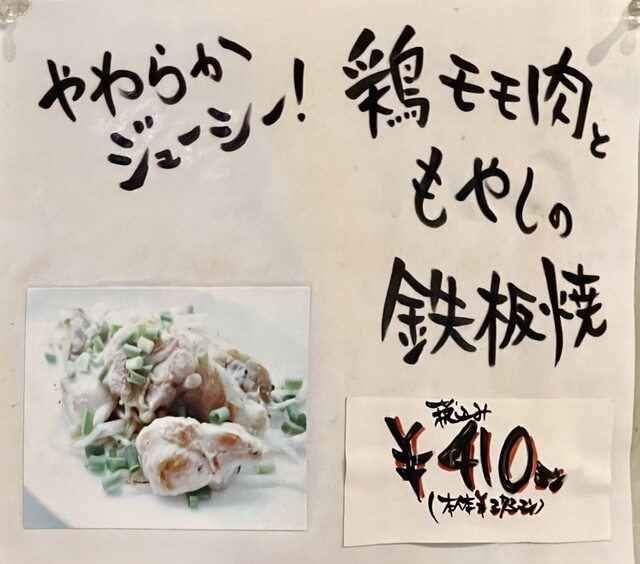 やわらか
ジューシー!
鶏モモ肉と
もやしの
鉄板焼
税込み
¥410エン
(本体¥373エン)